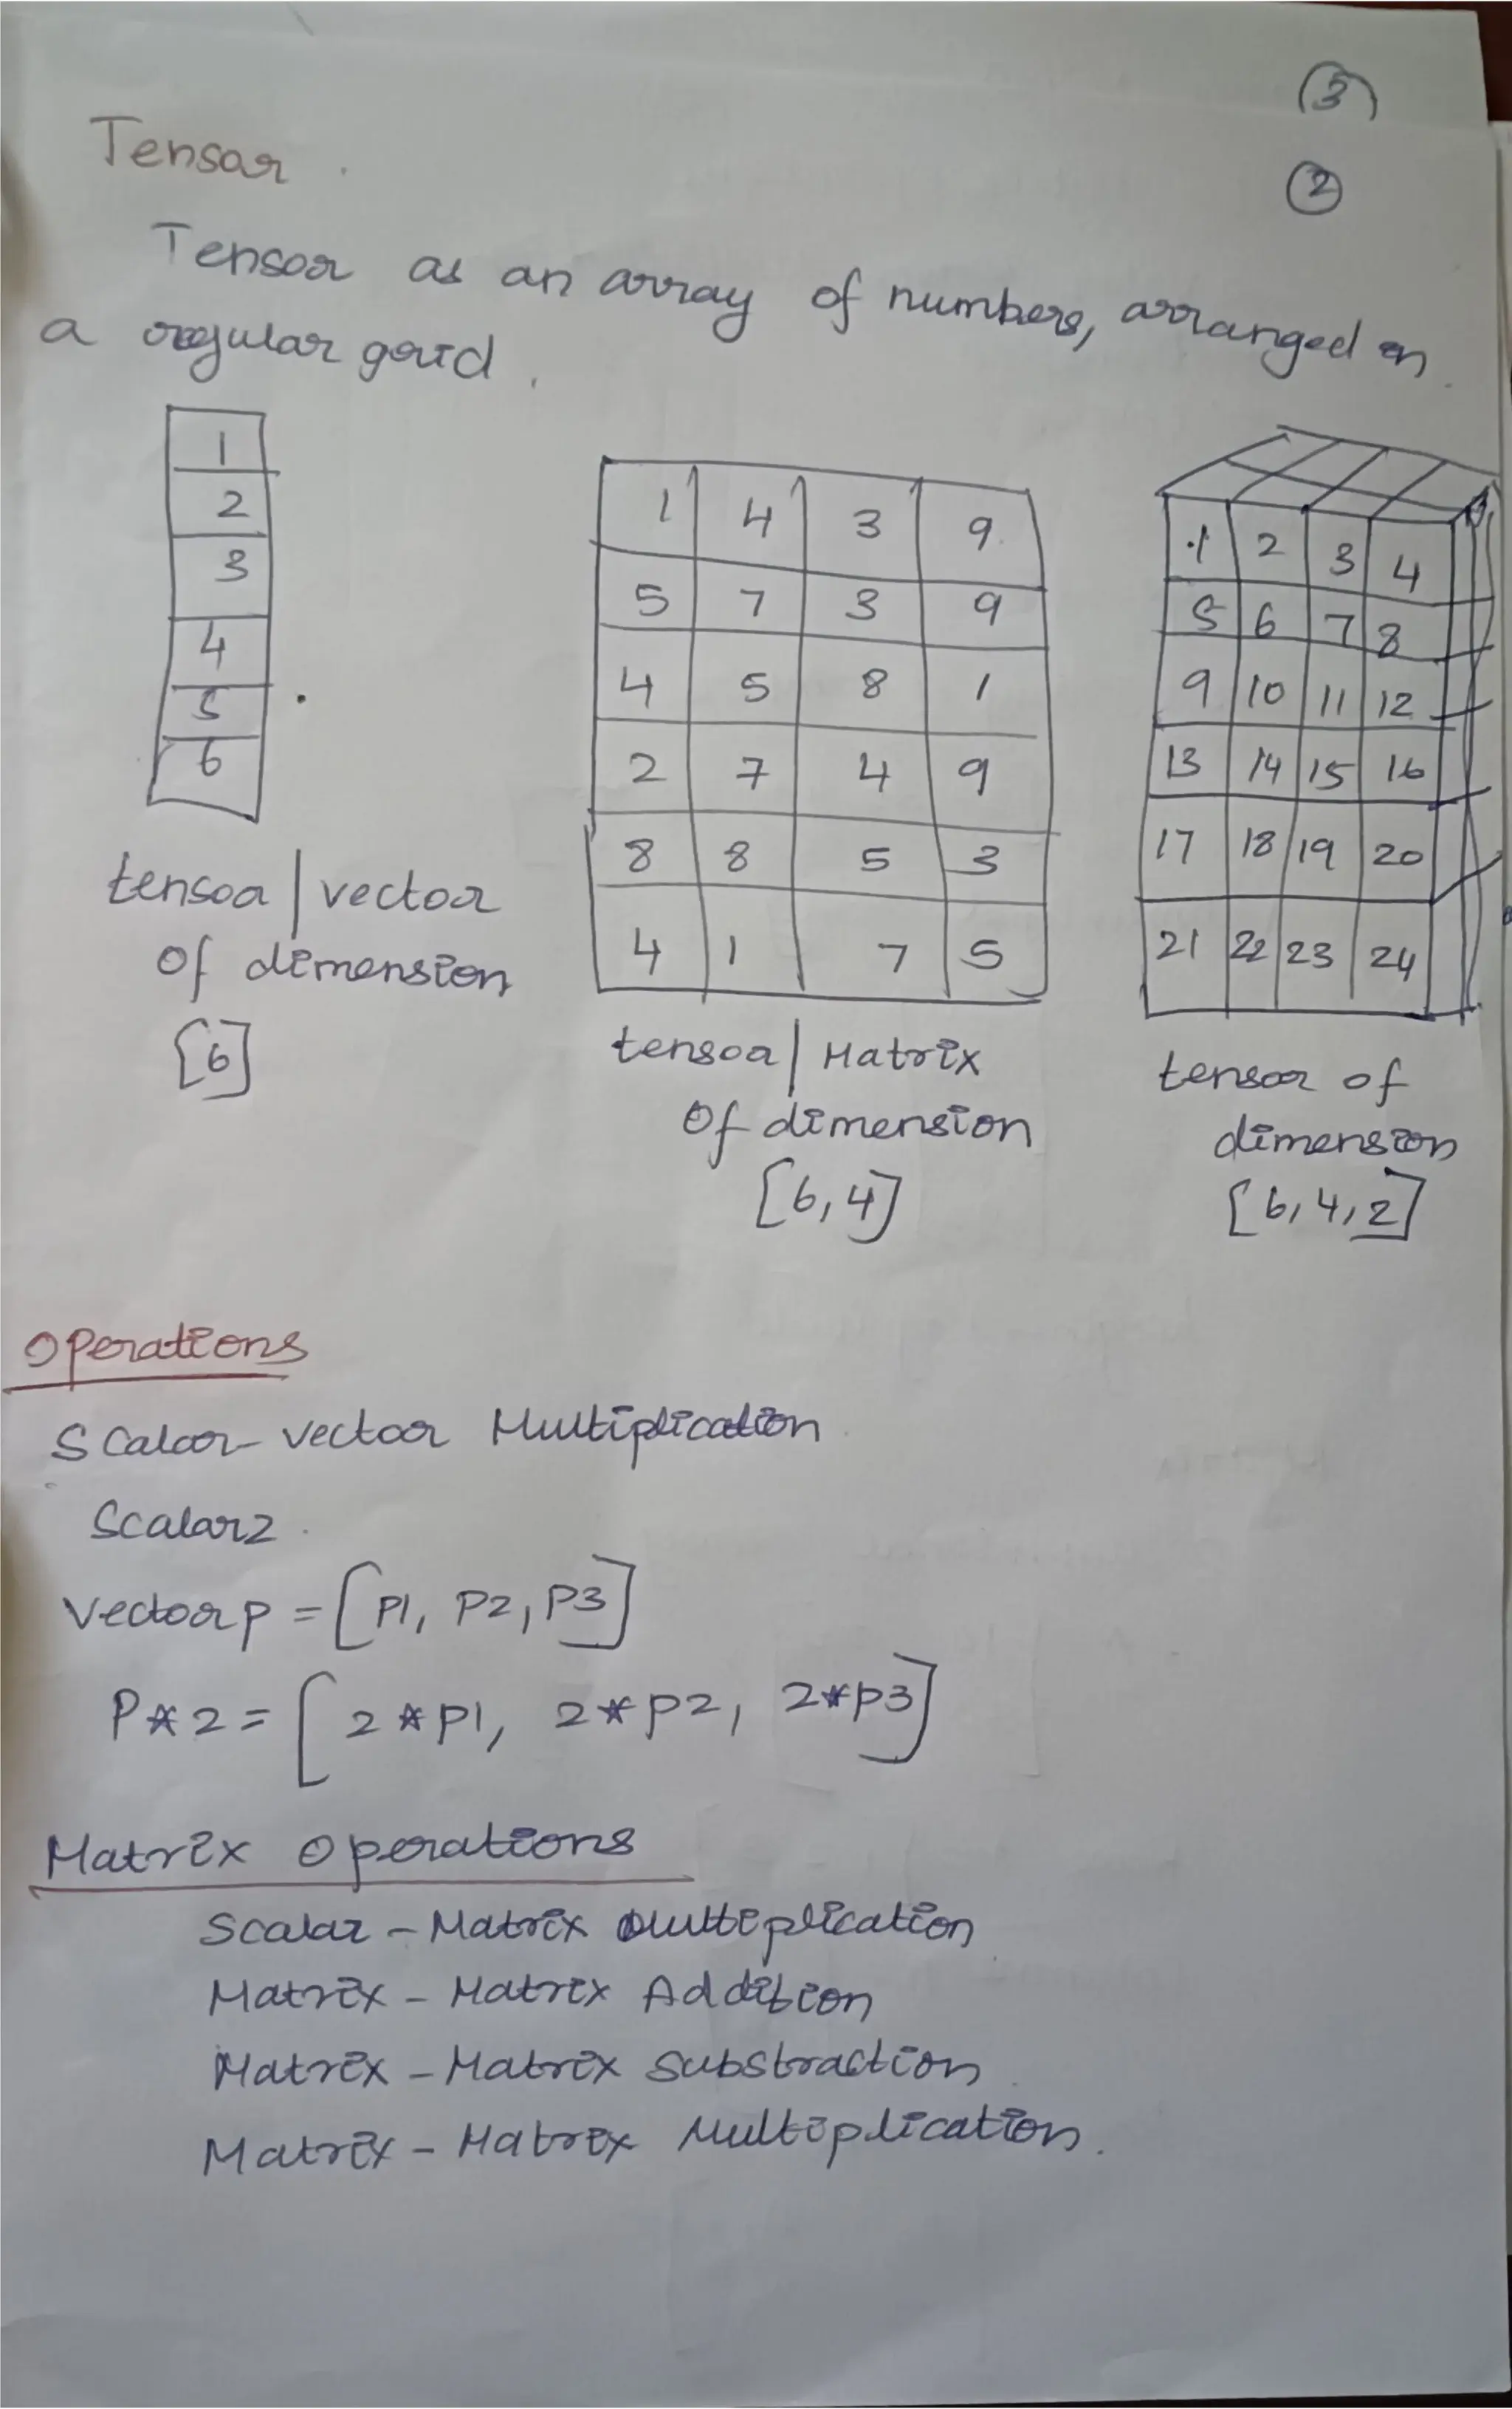 3
2
Tensor
Tensor as an array of numbers, arranged on
a regular grid.
1
2
3
4
5
6
tensor | vector
of dimension
[6]
1 4 3 9
5 7 3 9
4 5 8 1
2 7 4 9
8 8 5 3
4 1 7 5
tensor | Matrix
of dimension
[6,4]
1 2 3 4
5 6 7 8
9 10 11 12
13 14 15 16
17 18 19 20
21 22 23 24
tensor of
dimension
[6,4,2]
Operations
Scalar-vector Multiplication
Scalar 2
Vector p = [p1, p2, p3]
P*2 = [2*p1, 2*p2, 2*p3]
Matrix Operations
Scalar - Matrix Multiplication
Matrix - Matrix Addition
Matrix - Matrix Substraction
Matrix - Matrix Multiplication.